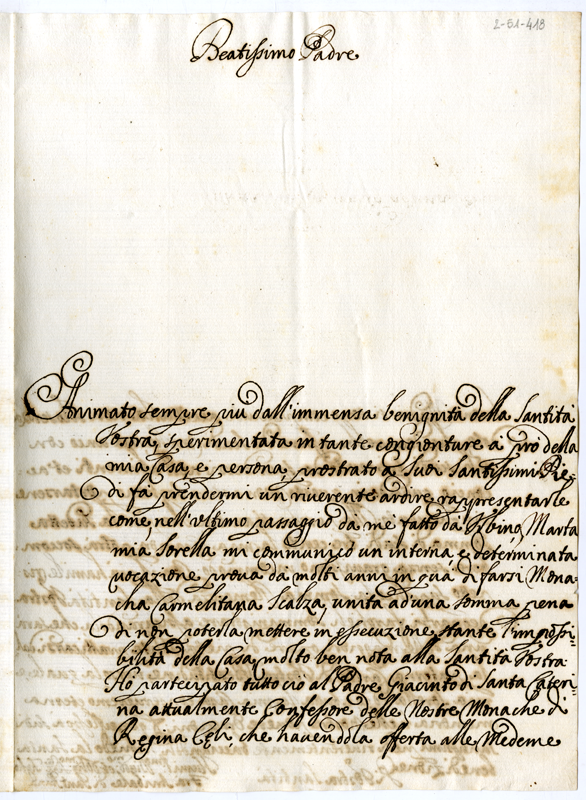 2-51-418
Beatissimo Padre
Animato sempre piu dall'immensa benignità della Santità
Vostra, sperimentata in tante congionture à prò della
mia Casa, e persona, prostrato a Suoi Santissimi Pie-
di fà prendermi un riverente ardire rappresentarle
come, nell'ultimo passaggio da me fatto dà Urbino, Marta
mia Sorella mi communicò un interna, e determinata
vocazione, prova da molti anni in quà di farsi Mona-
cha Carmelitana Scalza, unita ad una somma pena
di non poterla mettere in essecuzione, stante l'impossi-
bilità della Casa, molto ben nota alla Santità Vostra.
Hò partecipato tutto ciò al Padre Giacinto di Santa Cateri-
na attualmente Confessore delle Nostre Monache di
Regina Cęli, che havendola offerta alle Medeme